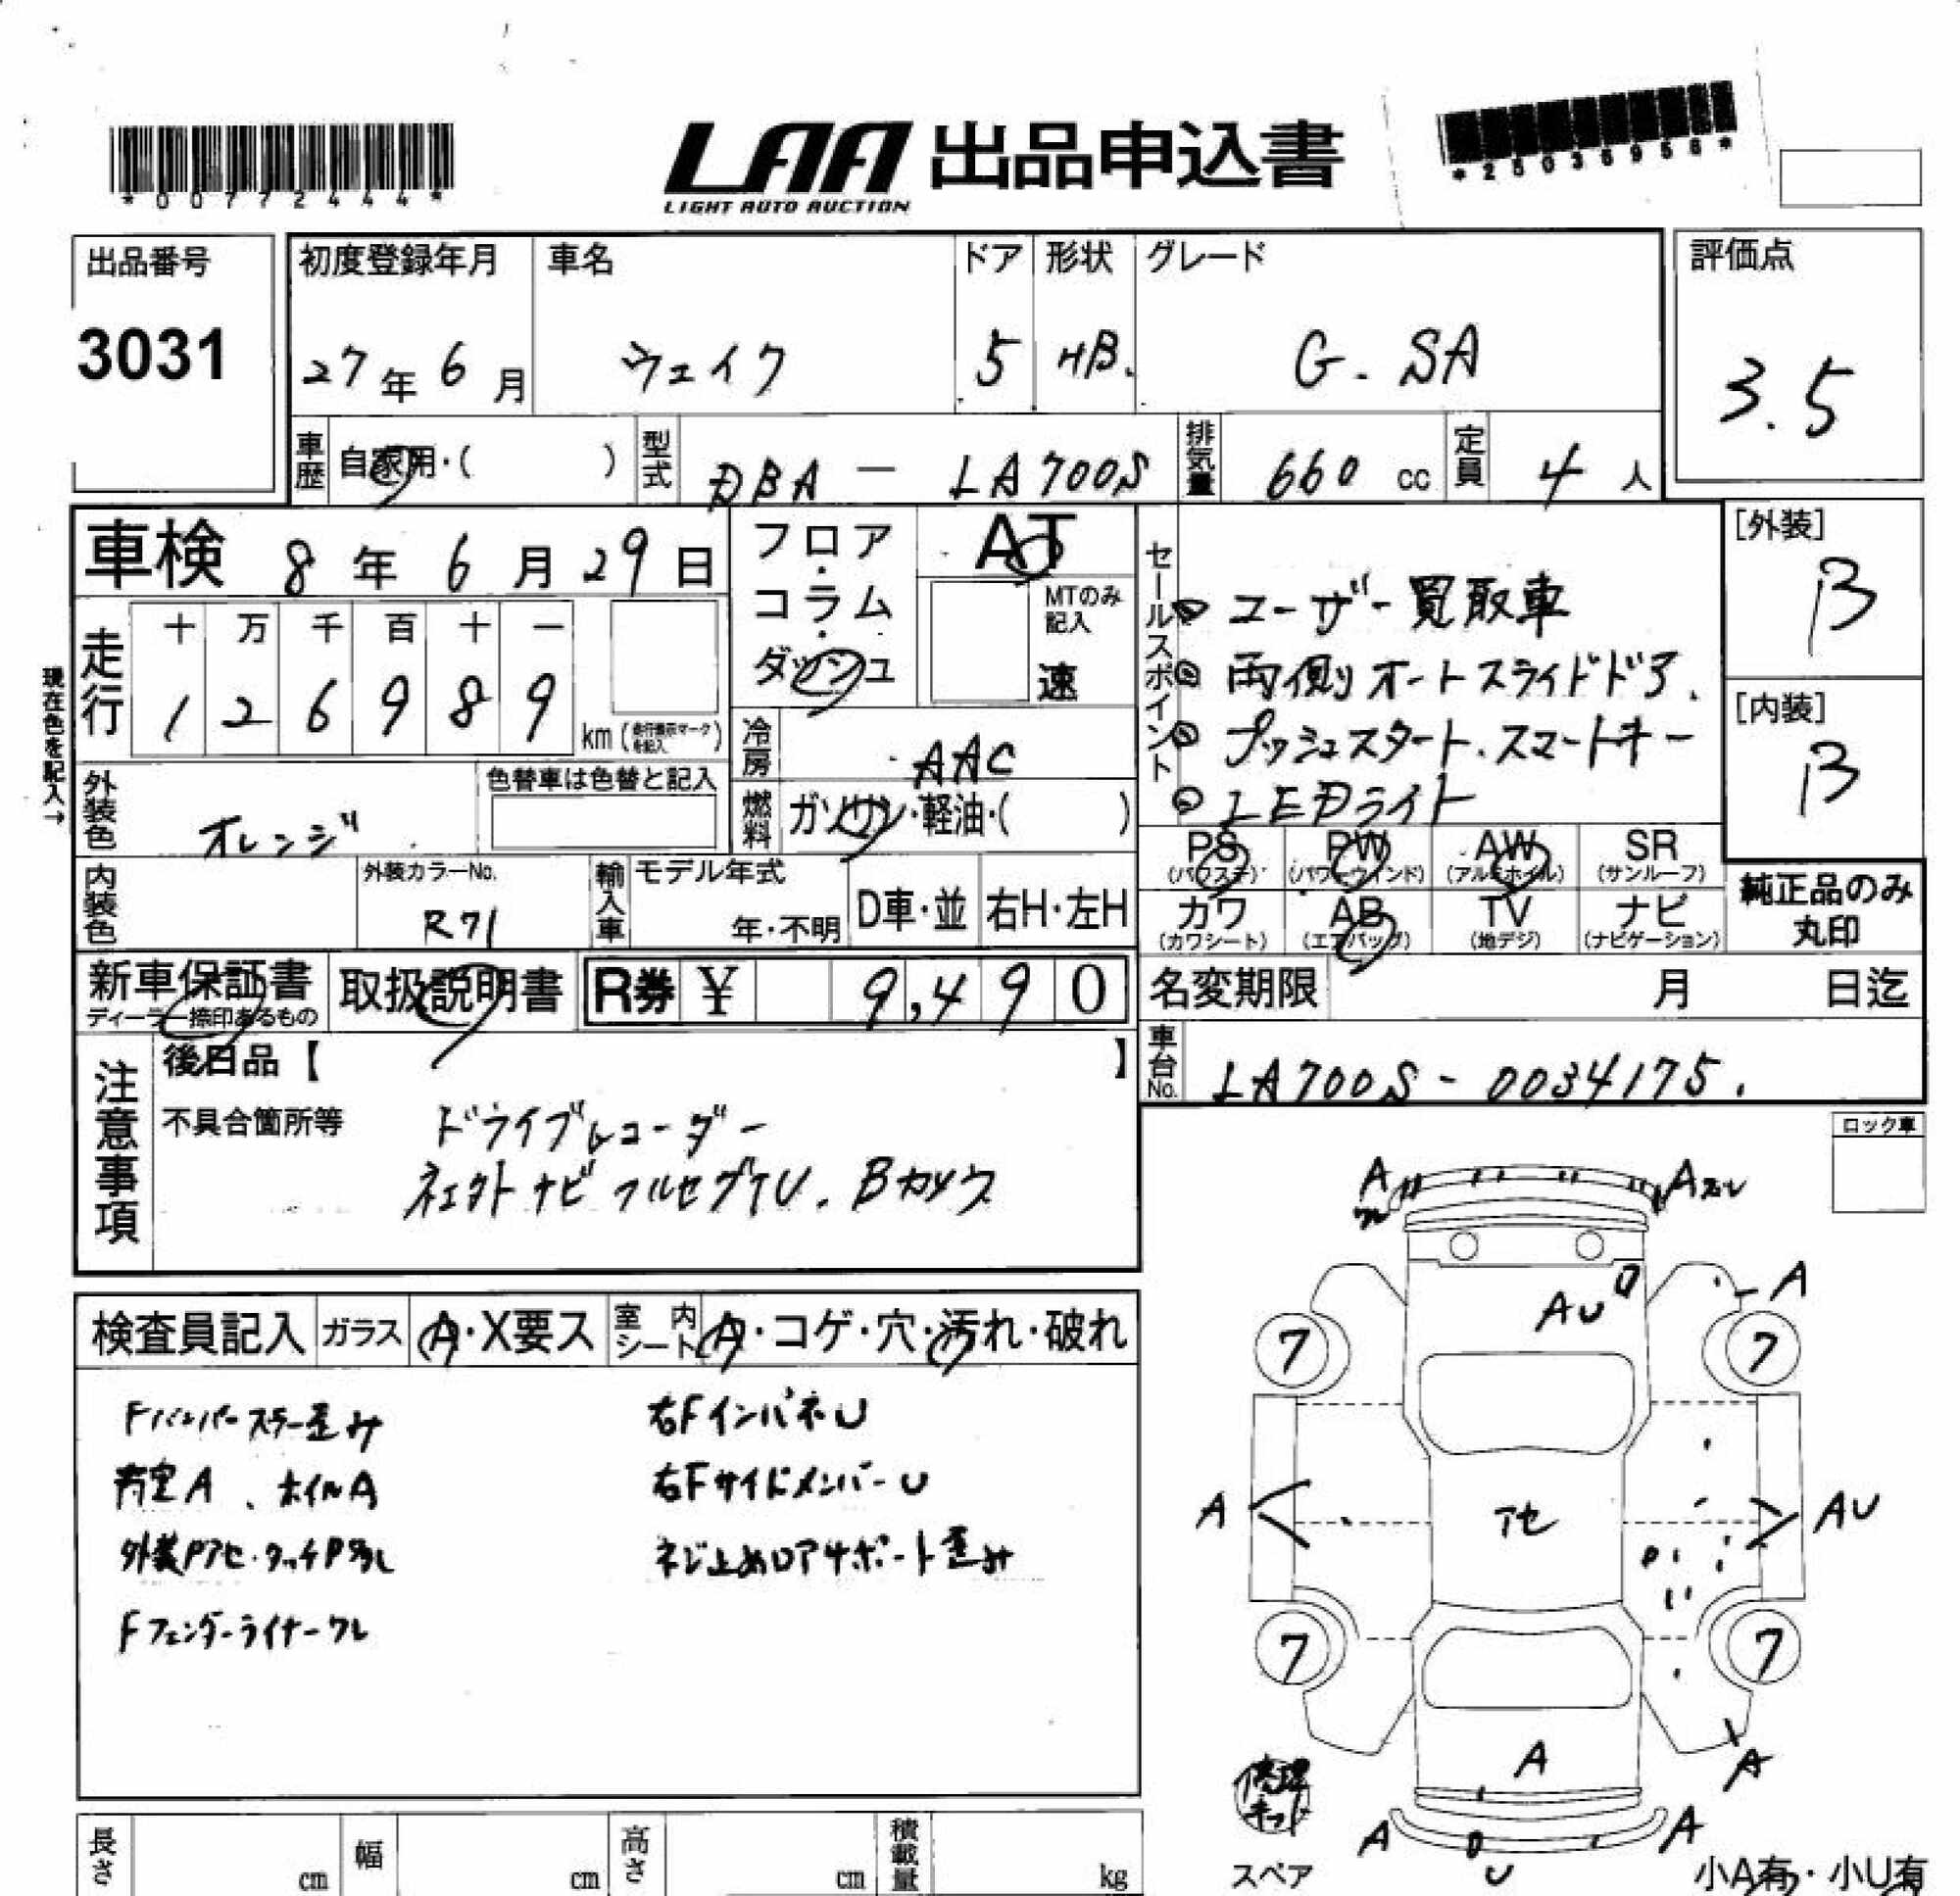 *00772444*
LAA 出品申込書
LIGHT AUTO AUCTION
*25036956*
出品番号
3031
初度登録年月
27年 6月
車名
ウェイク
ドア
5
形状
HB.
グレード
G. SA
評価点
3.5
車歴 自家用・( )
型式 DBA - LA700S
排気量 660 cc
定員 4人
車検 8年 6月 29日
フロア・コラム・ダッシュ
AT
MTのみ記入
速
走行
十 万 千 百 十 一
1 2 6 9 8 9
km(走行表示マークを記入)
現在色を記入→
セールスポイント
◎ ユーザー買取車
◎ 両側オートスライドドア.
◎ プッシュスタート.スマートキー
◎ LEDライト
[外装]
B
[内装]
B
冷房 AAC
外装色 オレンジ
色替車は色替と記入
燃料 ガソリン・軽油・( )
PS(パワステ) PW(パワーウィンド) AW(アルミホイル) SR(サンルーフ)
カワ(カワシート) AB(エアバッグ) TV(地デジ) ナビ(ナビゲーション)
純正品のみ丸印
内装色
外装カラーNo.
R71
輸入車
モデル年式
年・不明
D車・並
右H・左H
新車保証書
ディーラー捺印あるもの
取扱説明書
R券 ¥ 9,490
名変期限 月 日迄
車台No. LA700S - 0034175.
注意事項
後日品【 】
不具合箇所等
ドライブレコーダー
ナビ フルセグTV. Bカメラ
ロック車
検査員記入
ガラス A・X要ス
室内シート A・コゲ・穴・汚れ・破れ
Fバンパースラー歪み
右FインパネU
A、ホイルA
右FサイドメンバーU
外装Pアセ・タッチP多し
ネジ止めロアサポート歪み
Fフェンダーライナーワレ
A
ワレ
A
AU
A
7
7
A
アセ
AU
7
7
A
A
修理キット
A
U
A
スペア
小A有・小U有
長さ cm
幅 cm
高さ cm
積載量 kg